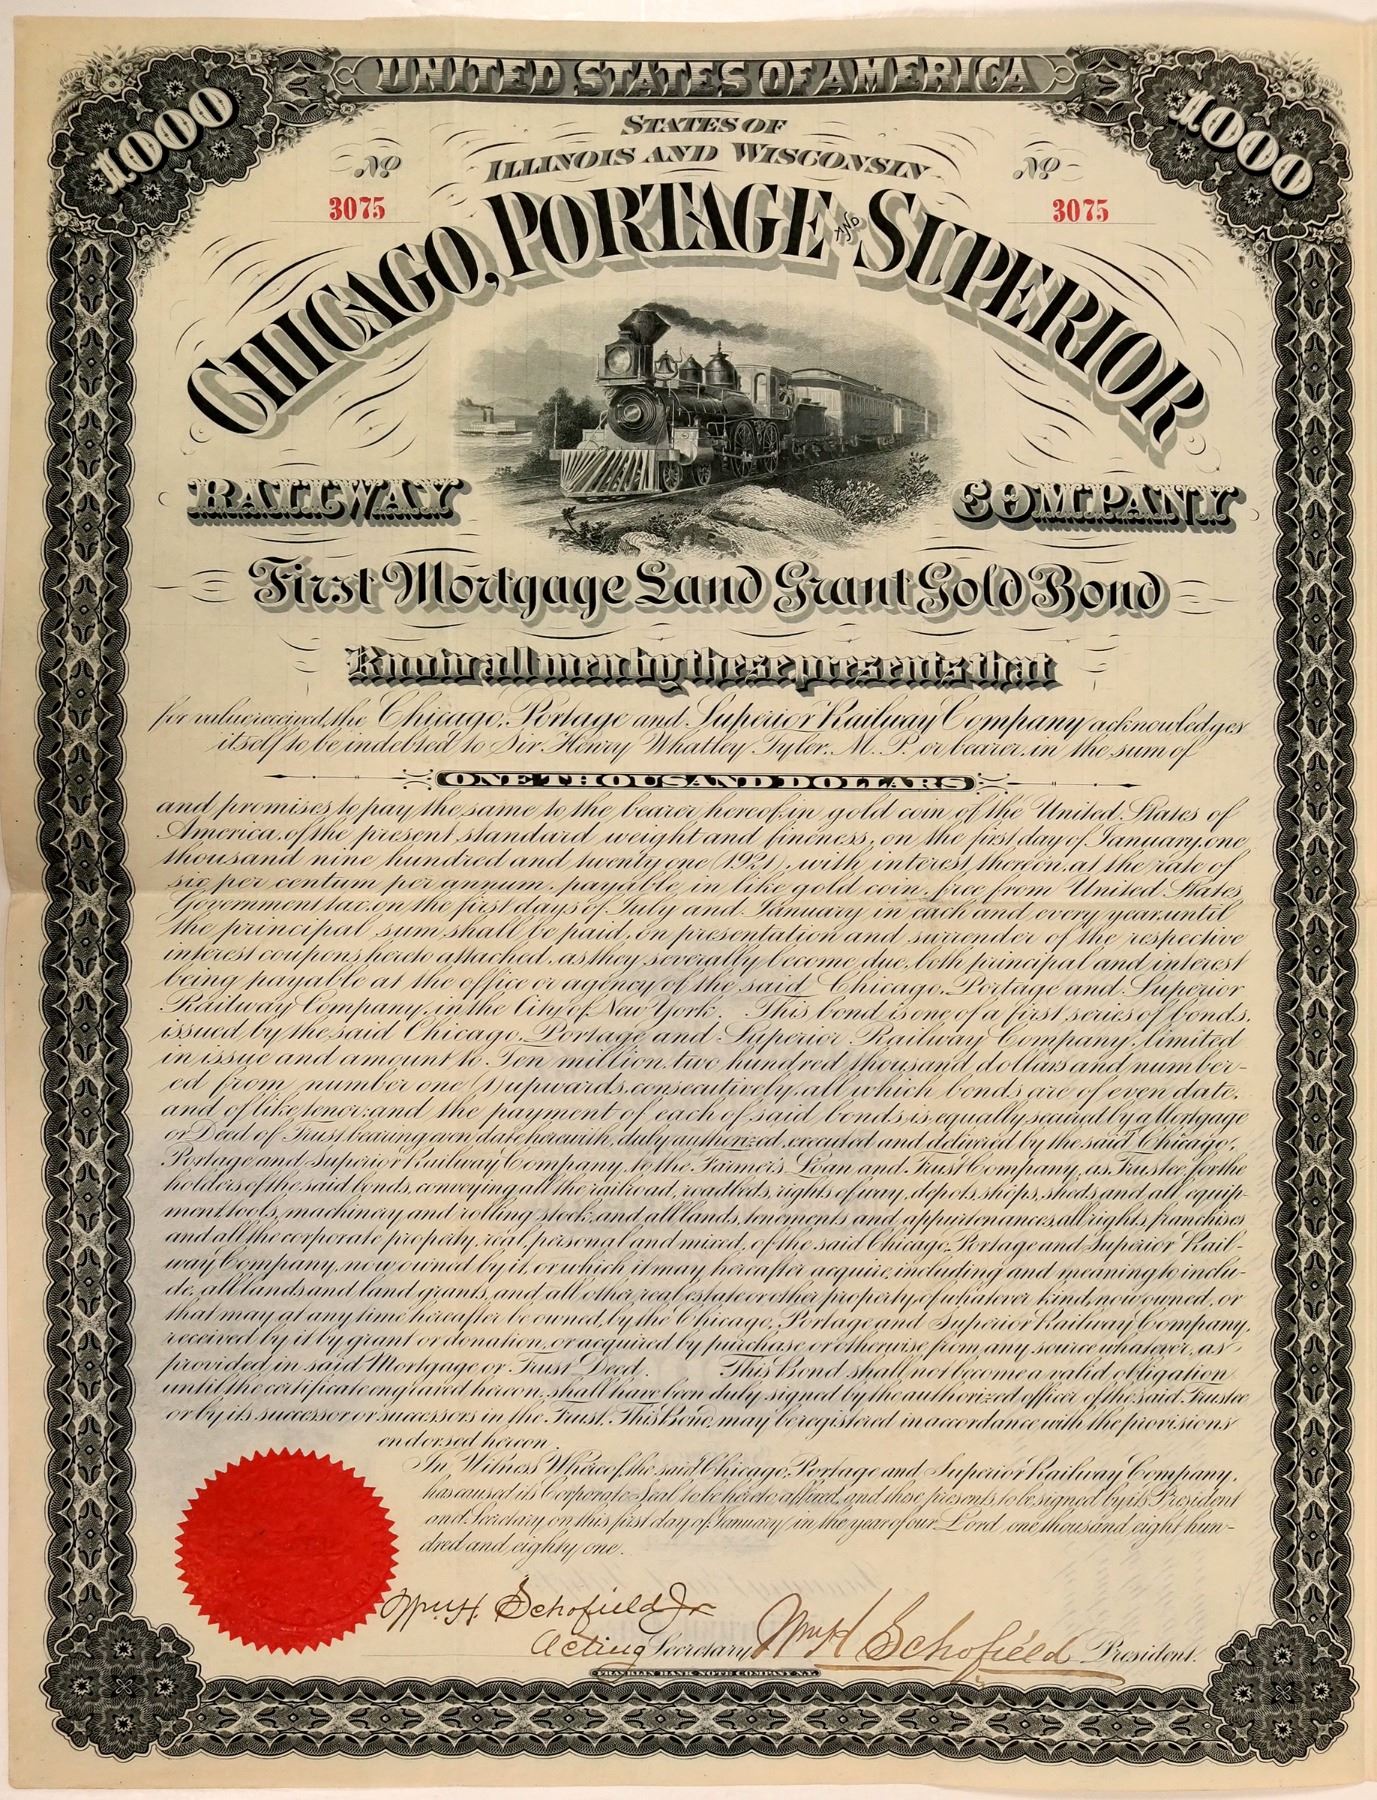 UNITED STATES OF AMERICA
1000
1000
STATES OF
ILLINOIS AND WISCONSIN
No
3075
No
3075
CHICAGO, PORTAGE AND SUPERIOR
RAILWAY COMPANY
First Mortgage Land Grant Gold Bond
Know all men by these presents that
for value received, the Chicago, Portage and Superior Railway Company acknowledges
itself to be indebted to Sir Henry Whatley Tyler, M. P. or bearer, in the sum of
ONE THOUSAND DOLLARS
and promises to pay the same to the bearer hereof, in gold coin of the United States of
America, of the present standard weight and fineness, on the first day of January, one
thousand nine hundred and twenty one (1921), with interest thereon, at the rate of
six per centum per annum, payable in like gold coin, free from United States
Government tax, on the first days of July and January in each and every year, until
the principal sum shall be paid, on presentation and surrender of the respective
interest coupons hereto attached, as they severally become due, both principal and interest
being payable at the office or agency of the said Chicago, Portage and Superior
Railway Company, in the City of New York. This bond is one of a first series of bonds,
issued by the said Chicago, Portage and Superior Railway Company, limited
in issue and amount to Ten million, two hundred thousand dollars and number-
ed from number one (1) upwards, consecutively, all which bonds are of even date,
and of like tenor; and the payment of each of said bonds is equally secured by a Mortgage
or Deed of Trust bearing even date herewith, duly authorized, executed and delivered by the said Chicago,
Portage and Superior Railway Company, to the Farmer's Loan and Trust Company, as Trustee, for the
holders of the said bonds, conveying all the railroad, roadbeds, rights of way, depots, shops, sheds, and all equip-
ment, tools, machinery and rolling stock, and all lands, tenements and appurtenances, all rights, franchises
and all the corporate property, real, personal and mixed, of the said Chicago, Portage and Superior Rail-
way Company, now owned by it, or which it may hereafter acquire, including and meaning to inclu-
de, all lands and land grants, and all other real estate or other property, of whatever kind, now owned, or
that may at any time hereafter be owned, by the Chicago, Portage and Superior Railway Company,
received by it by grant or donation, or acquired by purchase or otherwise, from any source whatever, as
provided in said Mortgage or Trust Deed. This Bond shall not become a valid obligation
until the certificate engraved hereon, shall have been duly signed by the authorized officer of the said Trustee
or by its successor or successors in the Trust. This Bond, may be registered in accordance with the provisions
endorsed hereon.
In Witness Whereof, the said Chicago, Portage and Superior Railway Company,
has caused its Corporate Seal to be hereto affixed, and these presents to be signed by its President
and Secretary on this first day of January, in the year of our Lord one thousand eight hun-
dred and eighty one.
Wm H. Schofield Jr
Acting Secretary
Wm H Schofield President.
FRANKLIN BANK NOTE COMPANY N.Y.